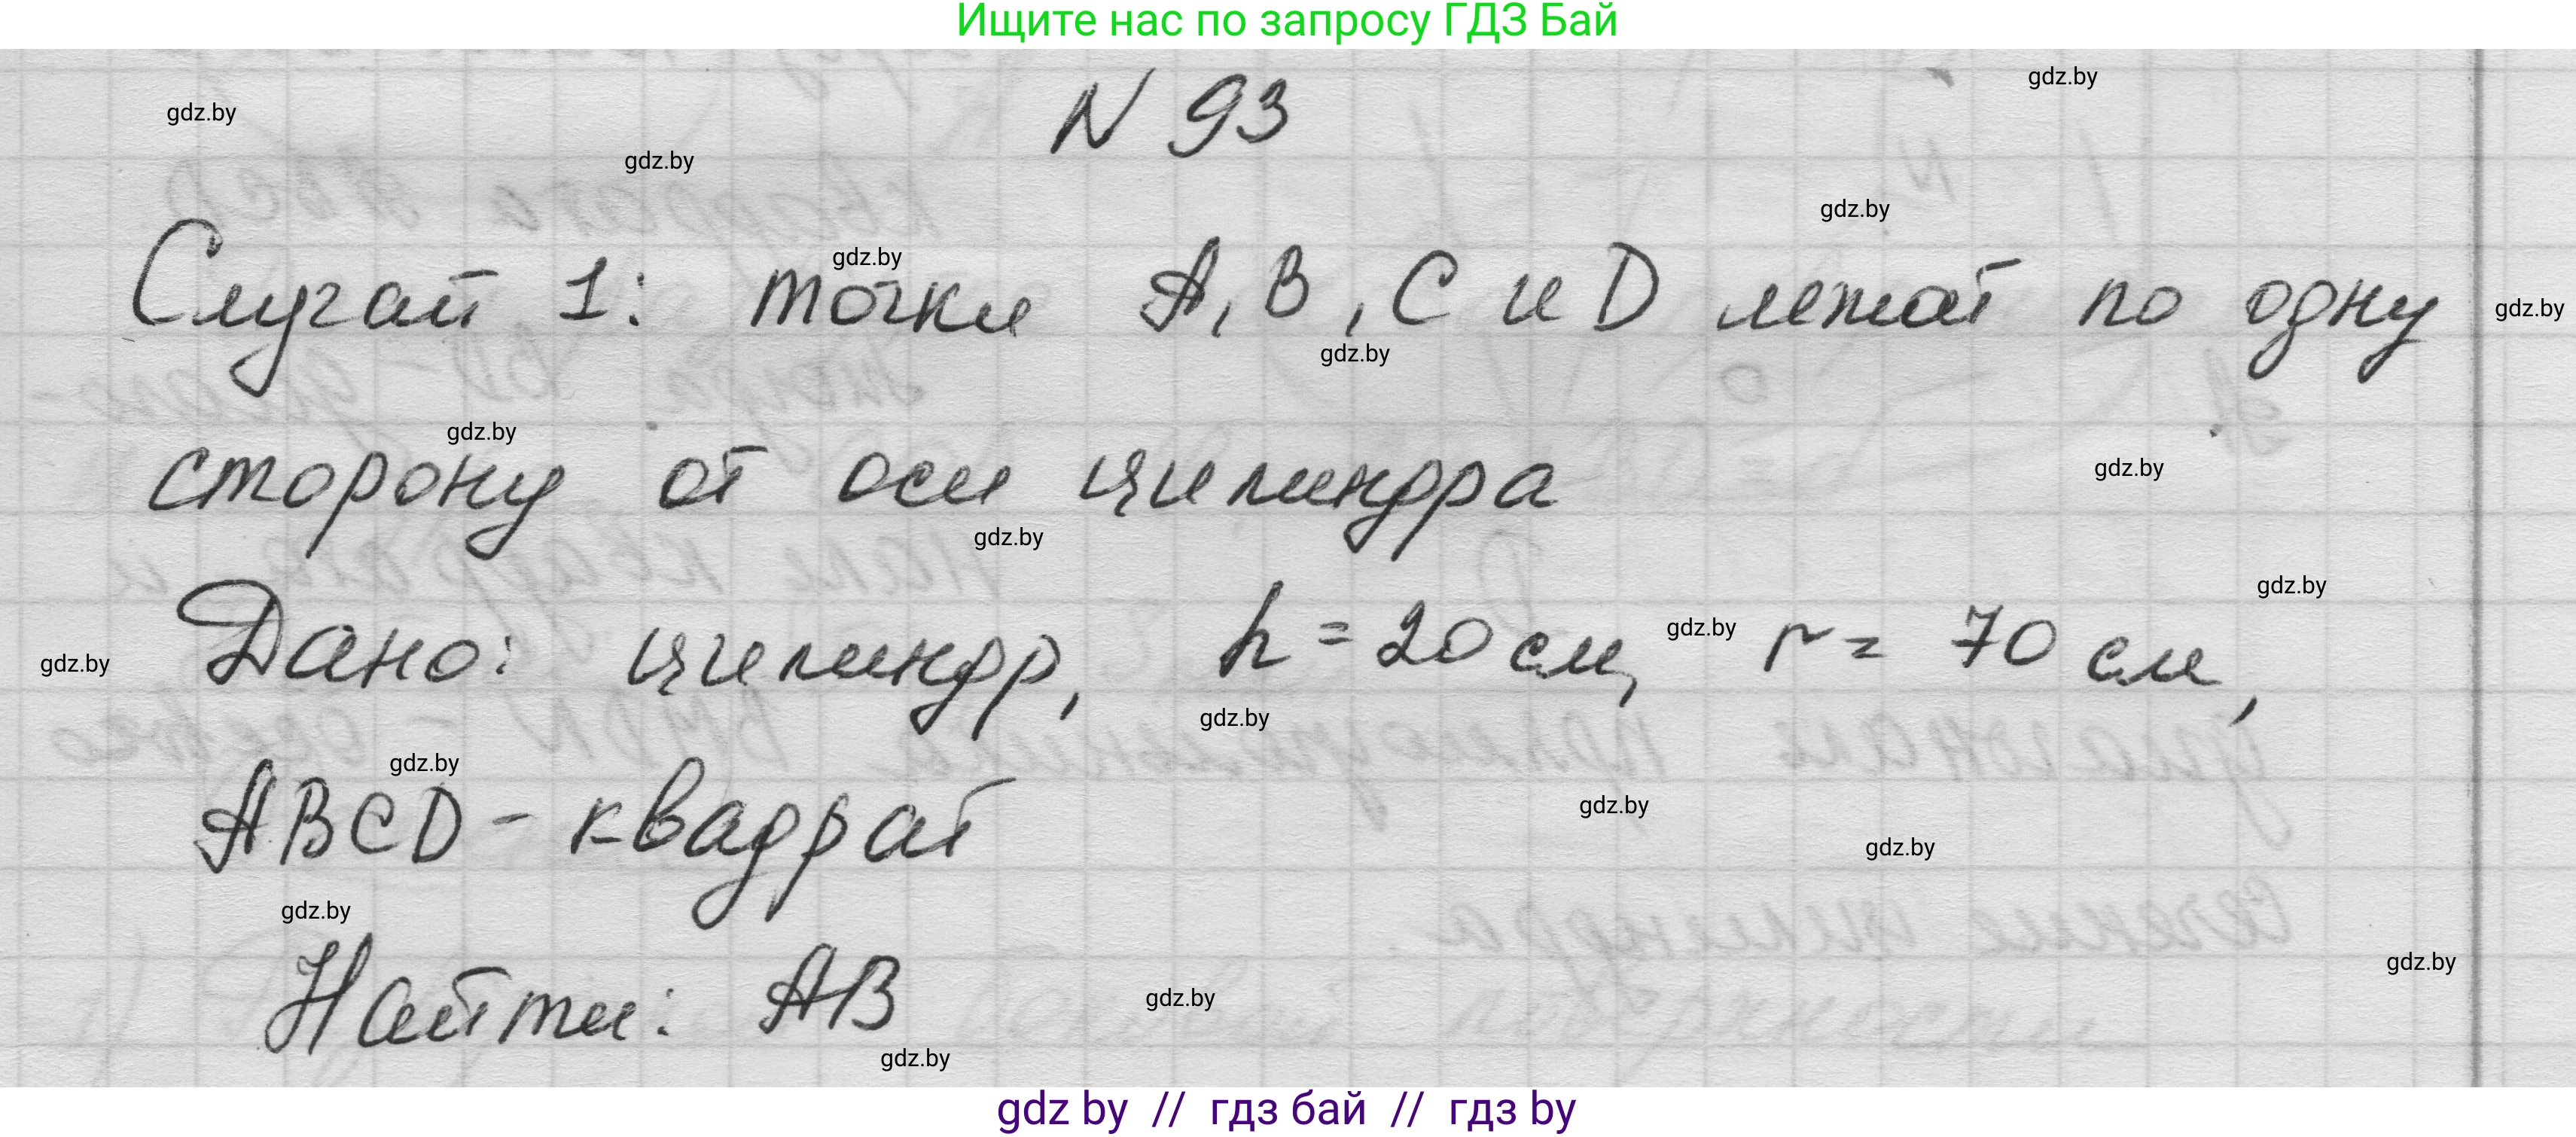 Ищите нас по запросу ГДЗ Бай
gdz.by
N 93
gdz.by
gdz.by
gdz.by
gdz.by
Случай 1: точки A, B, C и D лежат по одну
gdz.by
gdz.by
gdz.by
сторону от оси цилиндра
gdz.by
gdz.by
gdz.by
Дано: цилиндр, h = 20 см, r = 70 см,
gdz.by
gdz.by
gdz.by
gdz.by
ABCD - квадрат
gdz.by
gdz.by
gdz.by
gdz.by
Найти: AB
gdz.by
gdz.by
gdz by // гдз бай // гдз by